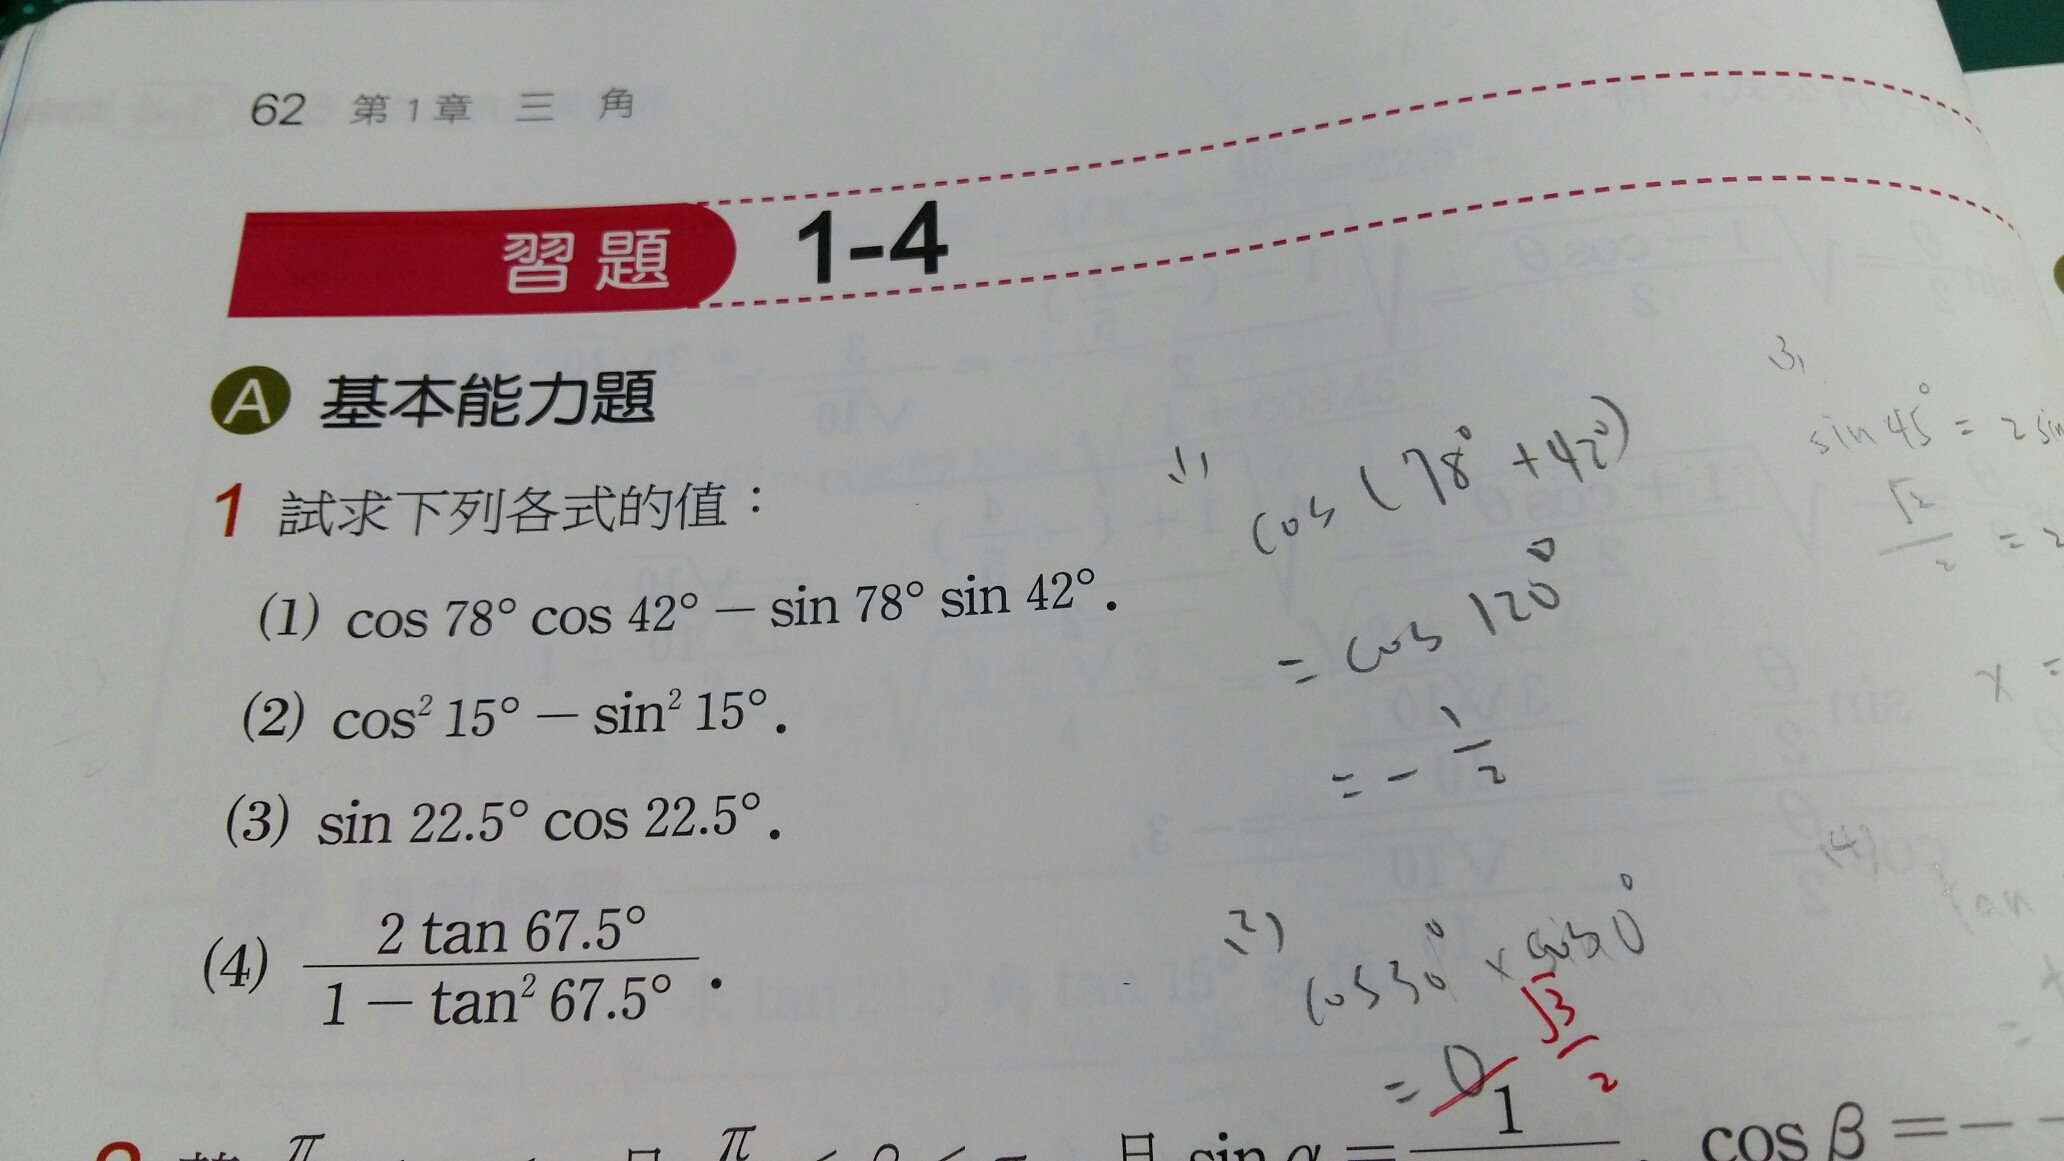 62 第1章 三 角
習題 1-4
A 基本能力題
1 試求下列各式的值：
(1) cos 78° cos 42° − sin 78° sin 42°.
(2) cos² 15° − sin² 15°.
(3) sin 22.5° cos 22.5°.
(4) 2 tan 67.5° / 1 − tan² 67.5° .
(1) cos (78° + 42°)
= cos 120°
= − 1/2
(2) cos30° ×
= 0 √3/2
3,
sin 45° = 2 sin
√2/2 = 2
(4)
sin α = 1
cos β = −